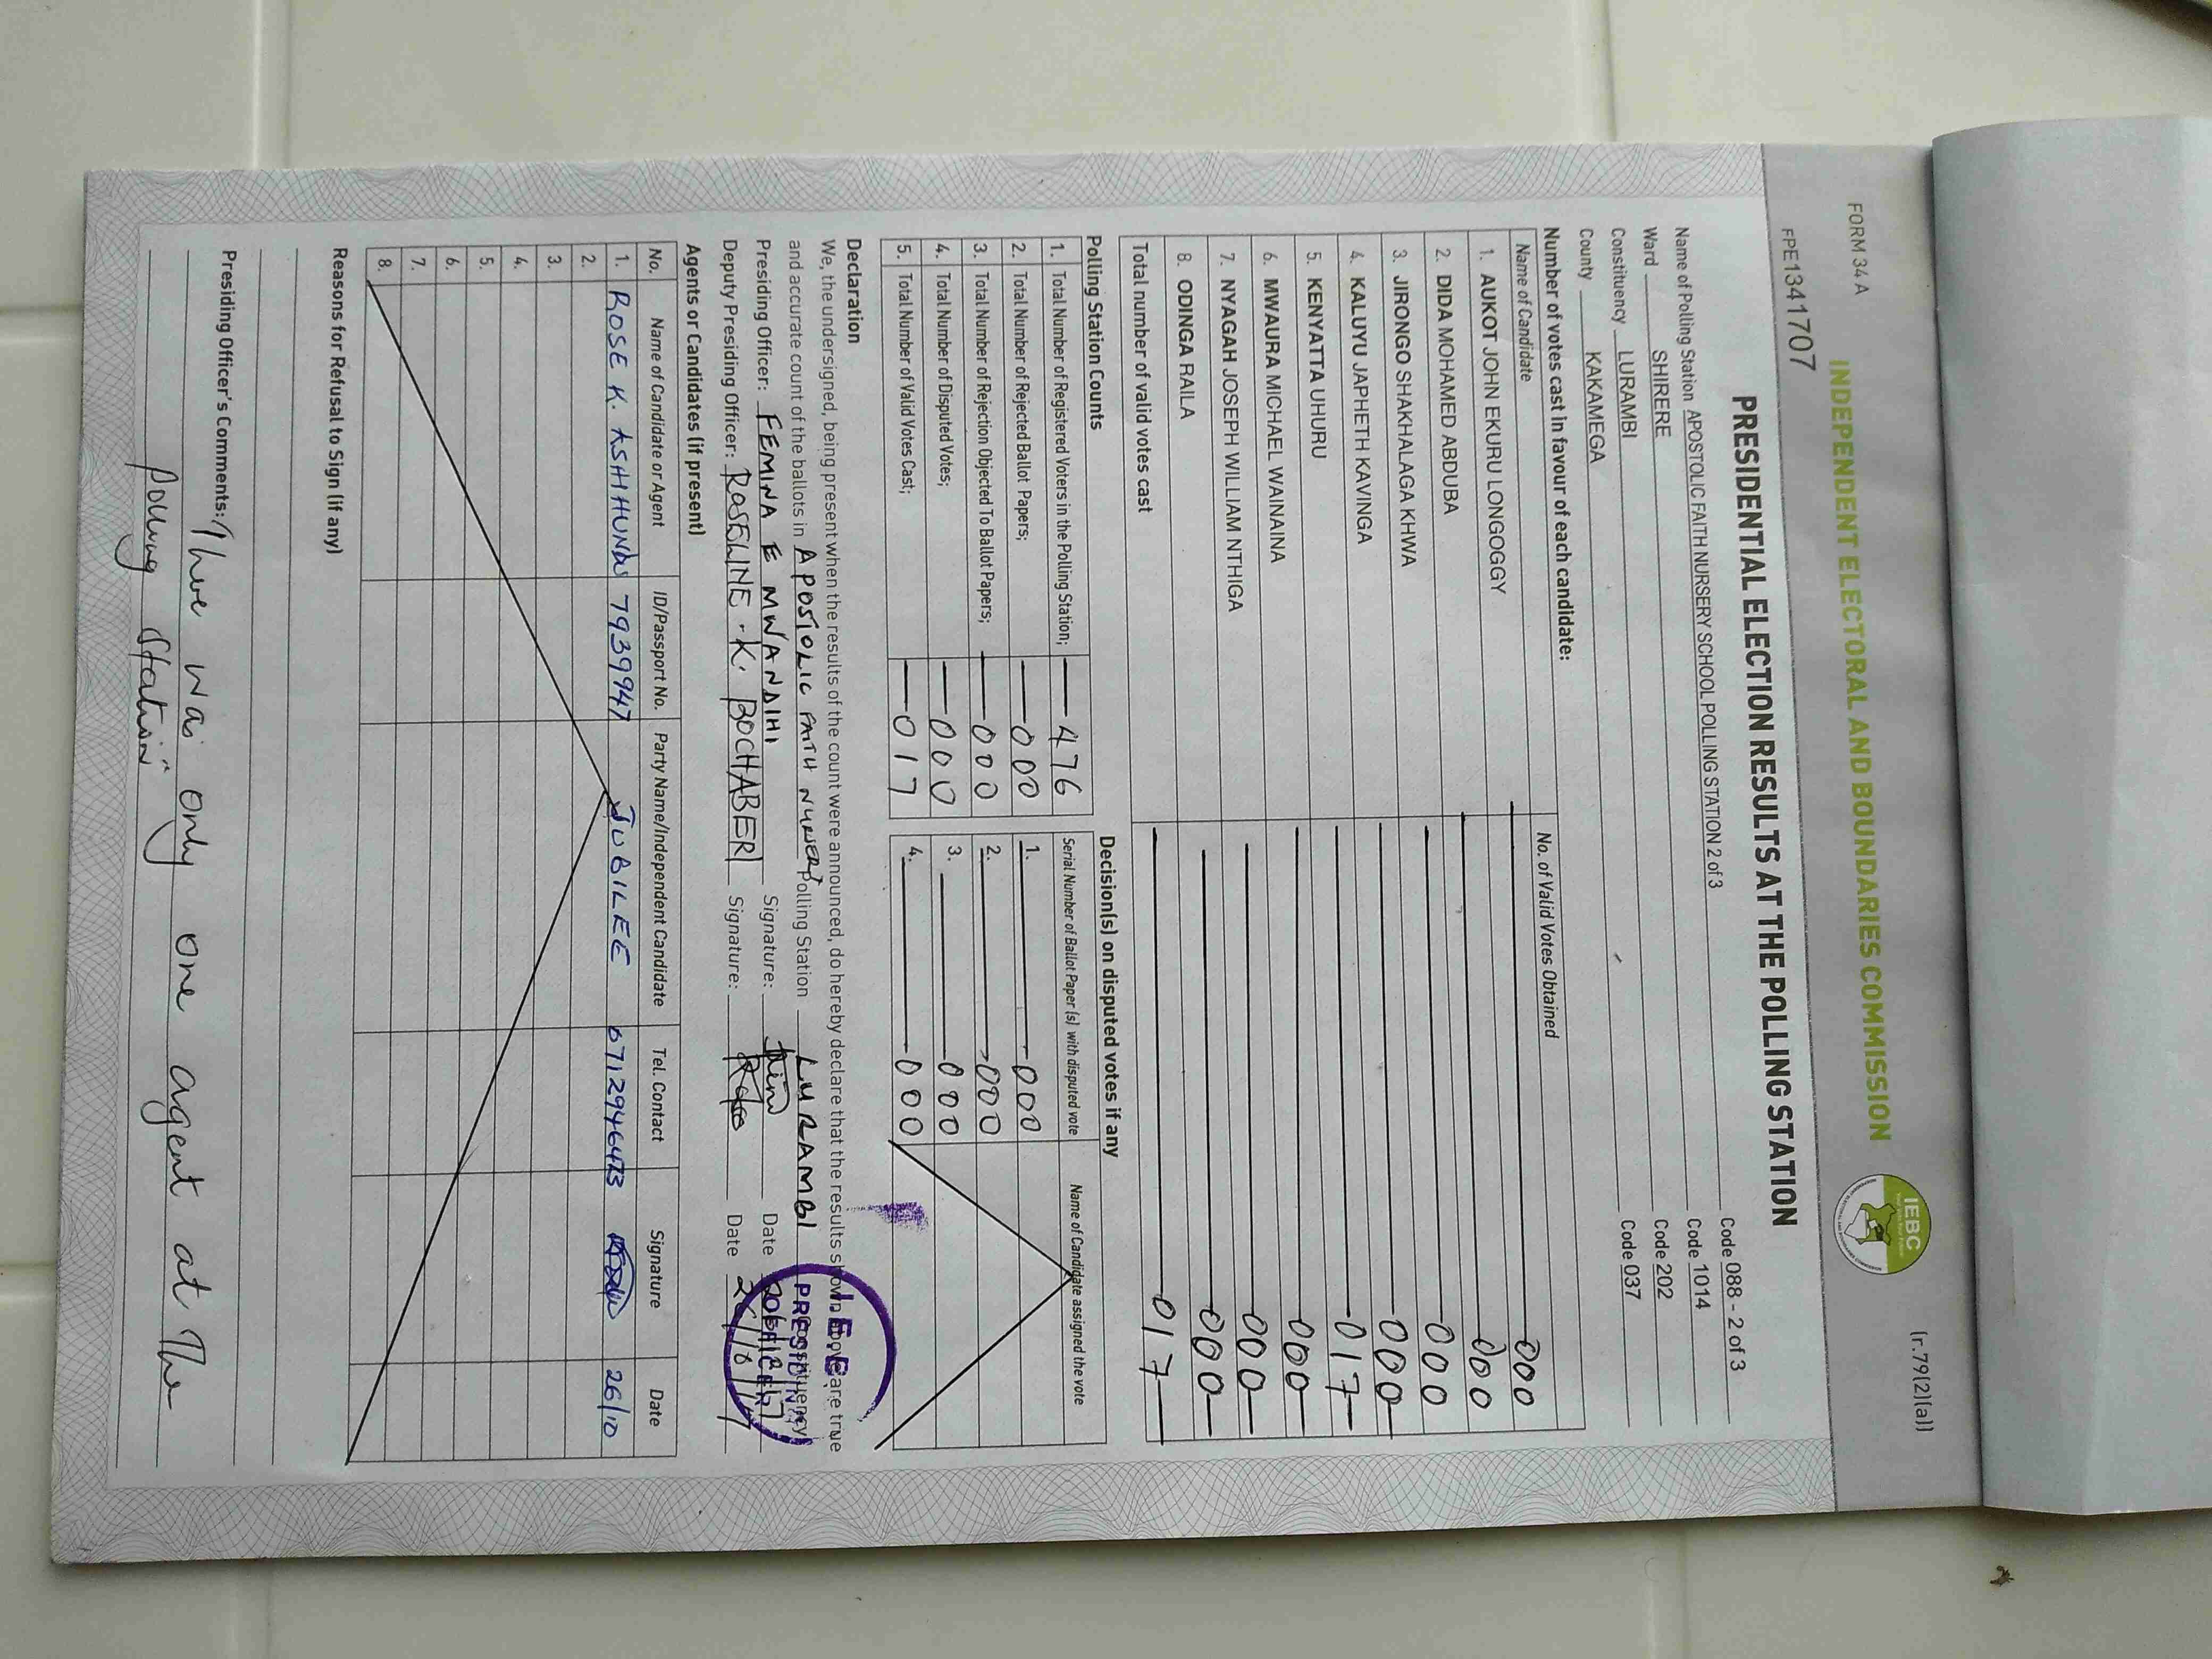 FORM 34 A
(r.79(2)(a))
INDEPENDENT ELECTORAL AND BOUNDARIES COMMISSION
IEBC
FPE1341707
PRESIDENTIAL ELECTION RESULTS AT THE POLLING STATION
Name of Polling Station APOSTOLIC FAITH NURSERY SCHOOL POLLING STATION 2 of 3 Code 088 - 2 of 3
Ward SHIRERE Code 1014
Constituency LURAMBI Code 202
County KAKAMEGA Code 037
Number of votes cast in favour of each candidate:
Name of Candidate No. of Valid Votes Obtained
1. AUKOT JOHN EKURU LONGOGGY 000
2. DIDA MOHAMED ABDUBA 000
3. JIRONGO SHAKHALAGA KHWA 000
4. KALUYU JAPHETH KAVINGA 000
5. KENYATTA UHURU 017
6. MWAURA MICHAEL WAINAINA 000
7. NYAGAH JOSEPH WILLIAM NTHIGA 000
8. ODINGA RAILA 000
Total number of valid votes cast 017
Polling Station Counts
1. Total Number of Registered Voters in the Polling Station; 476
2. Total Number of Rejected Ballot Papers; 000
3. Total Number of Rejection Objected To Ballot Papers; 000
4. Total Number of Disputed Votes; 000
5. Total Number of Valid Votes Cast; 017
Decision(s) on disputed votes if any
Serial Number of Ballot Paper (s) with disputed vote Name of Candidate assigned the vote
1. 000
2. 000
3. 000
4. 000
Declaration
We, the undersigned, being present when the results of the count were announced, do hereby declare that the results shown above are true
and accurate count of the ballots in APOSTOLIC FAITH Polling Station LURAMBI Constituency
Presiding Officer: FEMINA E MWANDIHI Signature: Date
Deputy Presiding Officer: ROSELINE . K. BOCHABER Signature: Date 26/10/17
IEBC
PRESIDING
OFFICER
Agents or Candidates (if present)
No. Name of Candidate or Agent ID/Passport No. Party Name/Independent Candidate Tel. Contact Signature Date
1. ROSE K. 7939947 JUBILEE 26/10
2.
3.
4.
5.
6.
7.
8.
Reasons for Refusal to Sign (if any)
Presiding Officer's Comments: There was only one agent at the
polling station